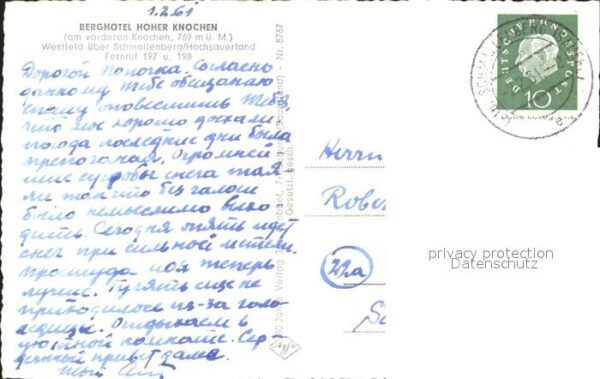 1.2.61
BERGHOTEL HOHER KNOCHEN
(am vorderen Knochen, 769 m ü. M.)
Westfeld über Schmallenberg/Hochsauerland
Fernruf 197 u. 198
Nr. 8767
Дорогой Папочка. Согласно
данному тебе обещанию
спешу оповестить тебя,
что мы хорошо доехали
погода последние дни была
препоганая. Огромней
шие сугробы снега тая
ли так что без галош
было немыслимо выхо
дить. Сегодня опять идет
снег при сильной метели.
Простуда моя теперь
лучше. Гулять еще не
приходилось из-за голо
ледицы. Отдыхаем в
уютной комнате. Сер
дечный привет дама.
Твой
Gesetzl. gesch.
Herrn
Rober
22a
DEUTSCHE BUNDESPOST
10
privacy protection
Datenschutz